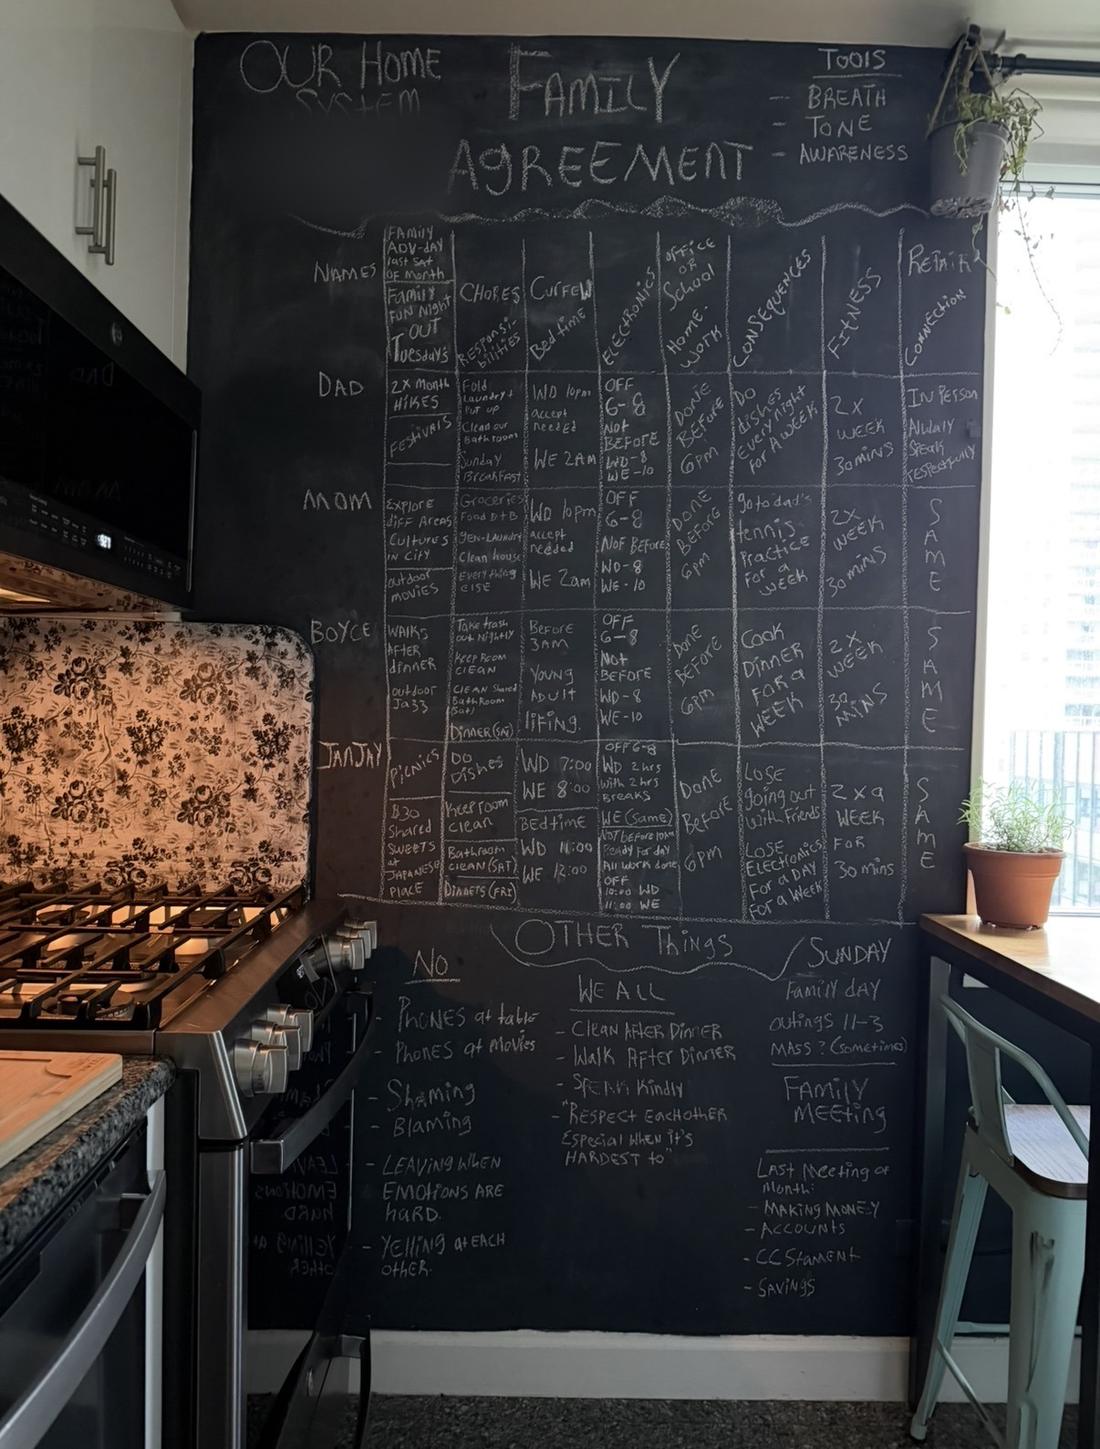 OUR HOME
SYSTEM
FAMILY
AGREEMENT
TOOlS
- BREATH
- TONE
- AWARENESS
NAMES
FAMILY
ADV-DAY
last Sat
OF MONTH
FAMILY
FUN NIGHT
OUT
TUESDAYS
CHORES
RESPONSI-
bilities
CURFEW
BEDTIME
ELECTRONICS
OFFICE
OR
School
HOME-
WORK
CONSEQUENCES
FITNESS
REPAIR
CONNECTION
DAD
2X MONTH
HIKES
FESTIVALS
Fold
Laundry +
PUT UP
Clean our
Bathroom
Sunday
BREAKFAST
WD 10pm
accept
needed
WE 2AM
OFF
6-8
Not
BEFORE
WD-8
WE-10
DONE
BEFORE
6pm
DO
dishes
Every night
For A WEEK
2X
WEEK
30 mins
IN PERSON
Speak
respectfully
MOM
EXPLORE
diff AREAS
CULTURES
IN CITY
outdoor
movies
Groceries
Food B+B
GEN-LAUNDRY
Clean house
Everything
ELSE
WD 10pm
accept
needed
WE 2am
OFF
6-8
Not Before
WD-8
WE-10
DONE
BEFORE
6pm
go to dad's
tennis
Practice
for a
WEEK
2X
WEEK
30 MINS
SAME
BOYCE
WALKS
AFTER
dinner
outdoor
Jazz
Take trash
out Nightly
KEEP ROOM
CLEAN
CLEAN Shared
Bathroom
(Sat)
DINNER (SAT)
BEFORE
3AM
YOUNG
ADULT
lifing.
OFF
6-8
Not
BEFORE
WD-8
WE-10
DONE
BEFORE
6pm
COOK
DINNER
FOR A
WEEK
2X
WEEK
30
MINS
SAME
JANJAY
PICNICS
Shared
SWEETS
at
JAPANESE
PLACE
DO
DISHES
KEEP ROOM
clean
Bathroom
CLEAN (SAT)
DINNERS (FRI)
WD 7:00
WE 8:00
BEDTIME
WD 11:00
WE 12:00
OFF 6-8
WD 2hrs
with 2hrs
BREAKS
WE (Same)
Not before 10am
Ready for day
All work done
OFF
10:00 WD
11:00 WE
DONE
BEFORE
6PM
LOSE
going out
with friends
LOSE
Electronics
For a DAY
For a WEEK
2 x a
WEEK
FOR
30 mins
SAME
OTHER Things
NO
- PHONES at table
- Phones at movies
- Shaming
- Blaming
- LEAVING WHEN
EMOTIONS ARE
hARD.
- YElling at EACH
other.
WE ALL
- Clean AFTER DINNER
- Walk AFTER DINNER
- SPEAK Kindly
- "RESPECT EachOTHER
Especial WHEN it's
HARDEST to"
SUNDAY
Family DAY
outings 11-3
MASS? (sometimes)
FAMILY
MEETING
LAST MEETING OF
Month:
- MAKING MONEY
- ACCOUNTS
- CC Stament
- SAVINGS